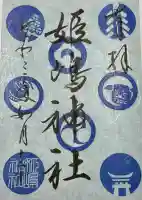 奉拝
姫嶋神社
令和三年如月